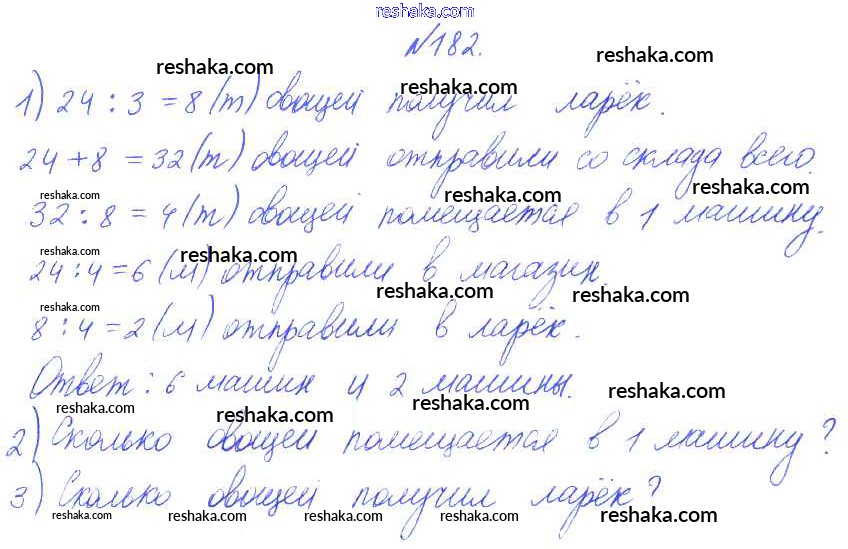 reshaka.com
№182.
reshaka.com reshaka.com
1) 24 : 3 = 8 (т) овощей получил ларёк.
reshaka.com
24 + 8 = 32 (т) овощей отправили со склада всего.
reshaka.com reshaka.com reshaka.com
32 : 8 = 4 (т) овощей помещается в 1 машину.
reshaka.com reshaka.com
24 : 4 = 6 (м) отправили в магазин.
reshaka.com reshaka.com reshaka.com
8 : 4 = 2 (м) отправили в ларёк.
Ответ: 6 машин и 2 машины.
reshaka.com reshaka.com reshaka.com reshaka.com
2) Сколько овощей помещается в 1 машину?
3) Сколько овощей получил ларёк?
reshaka.com reshaka.com reshaka.com reshaka.com reshaka.com